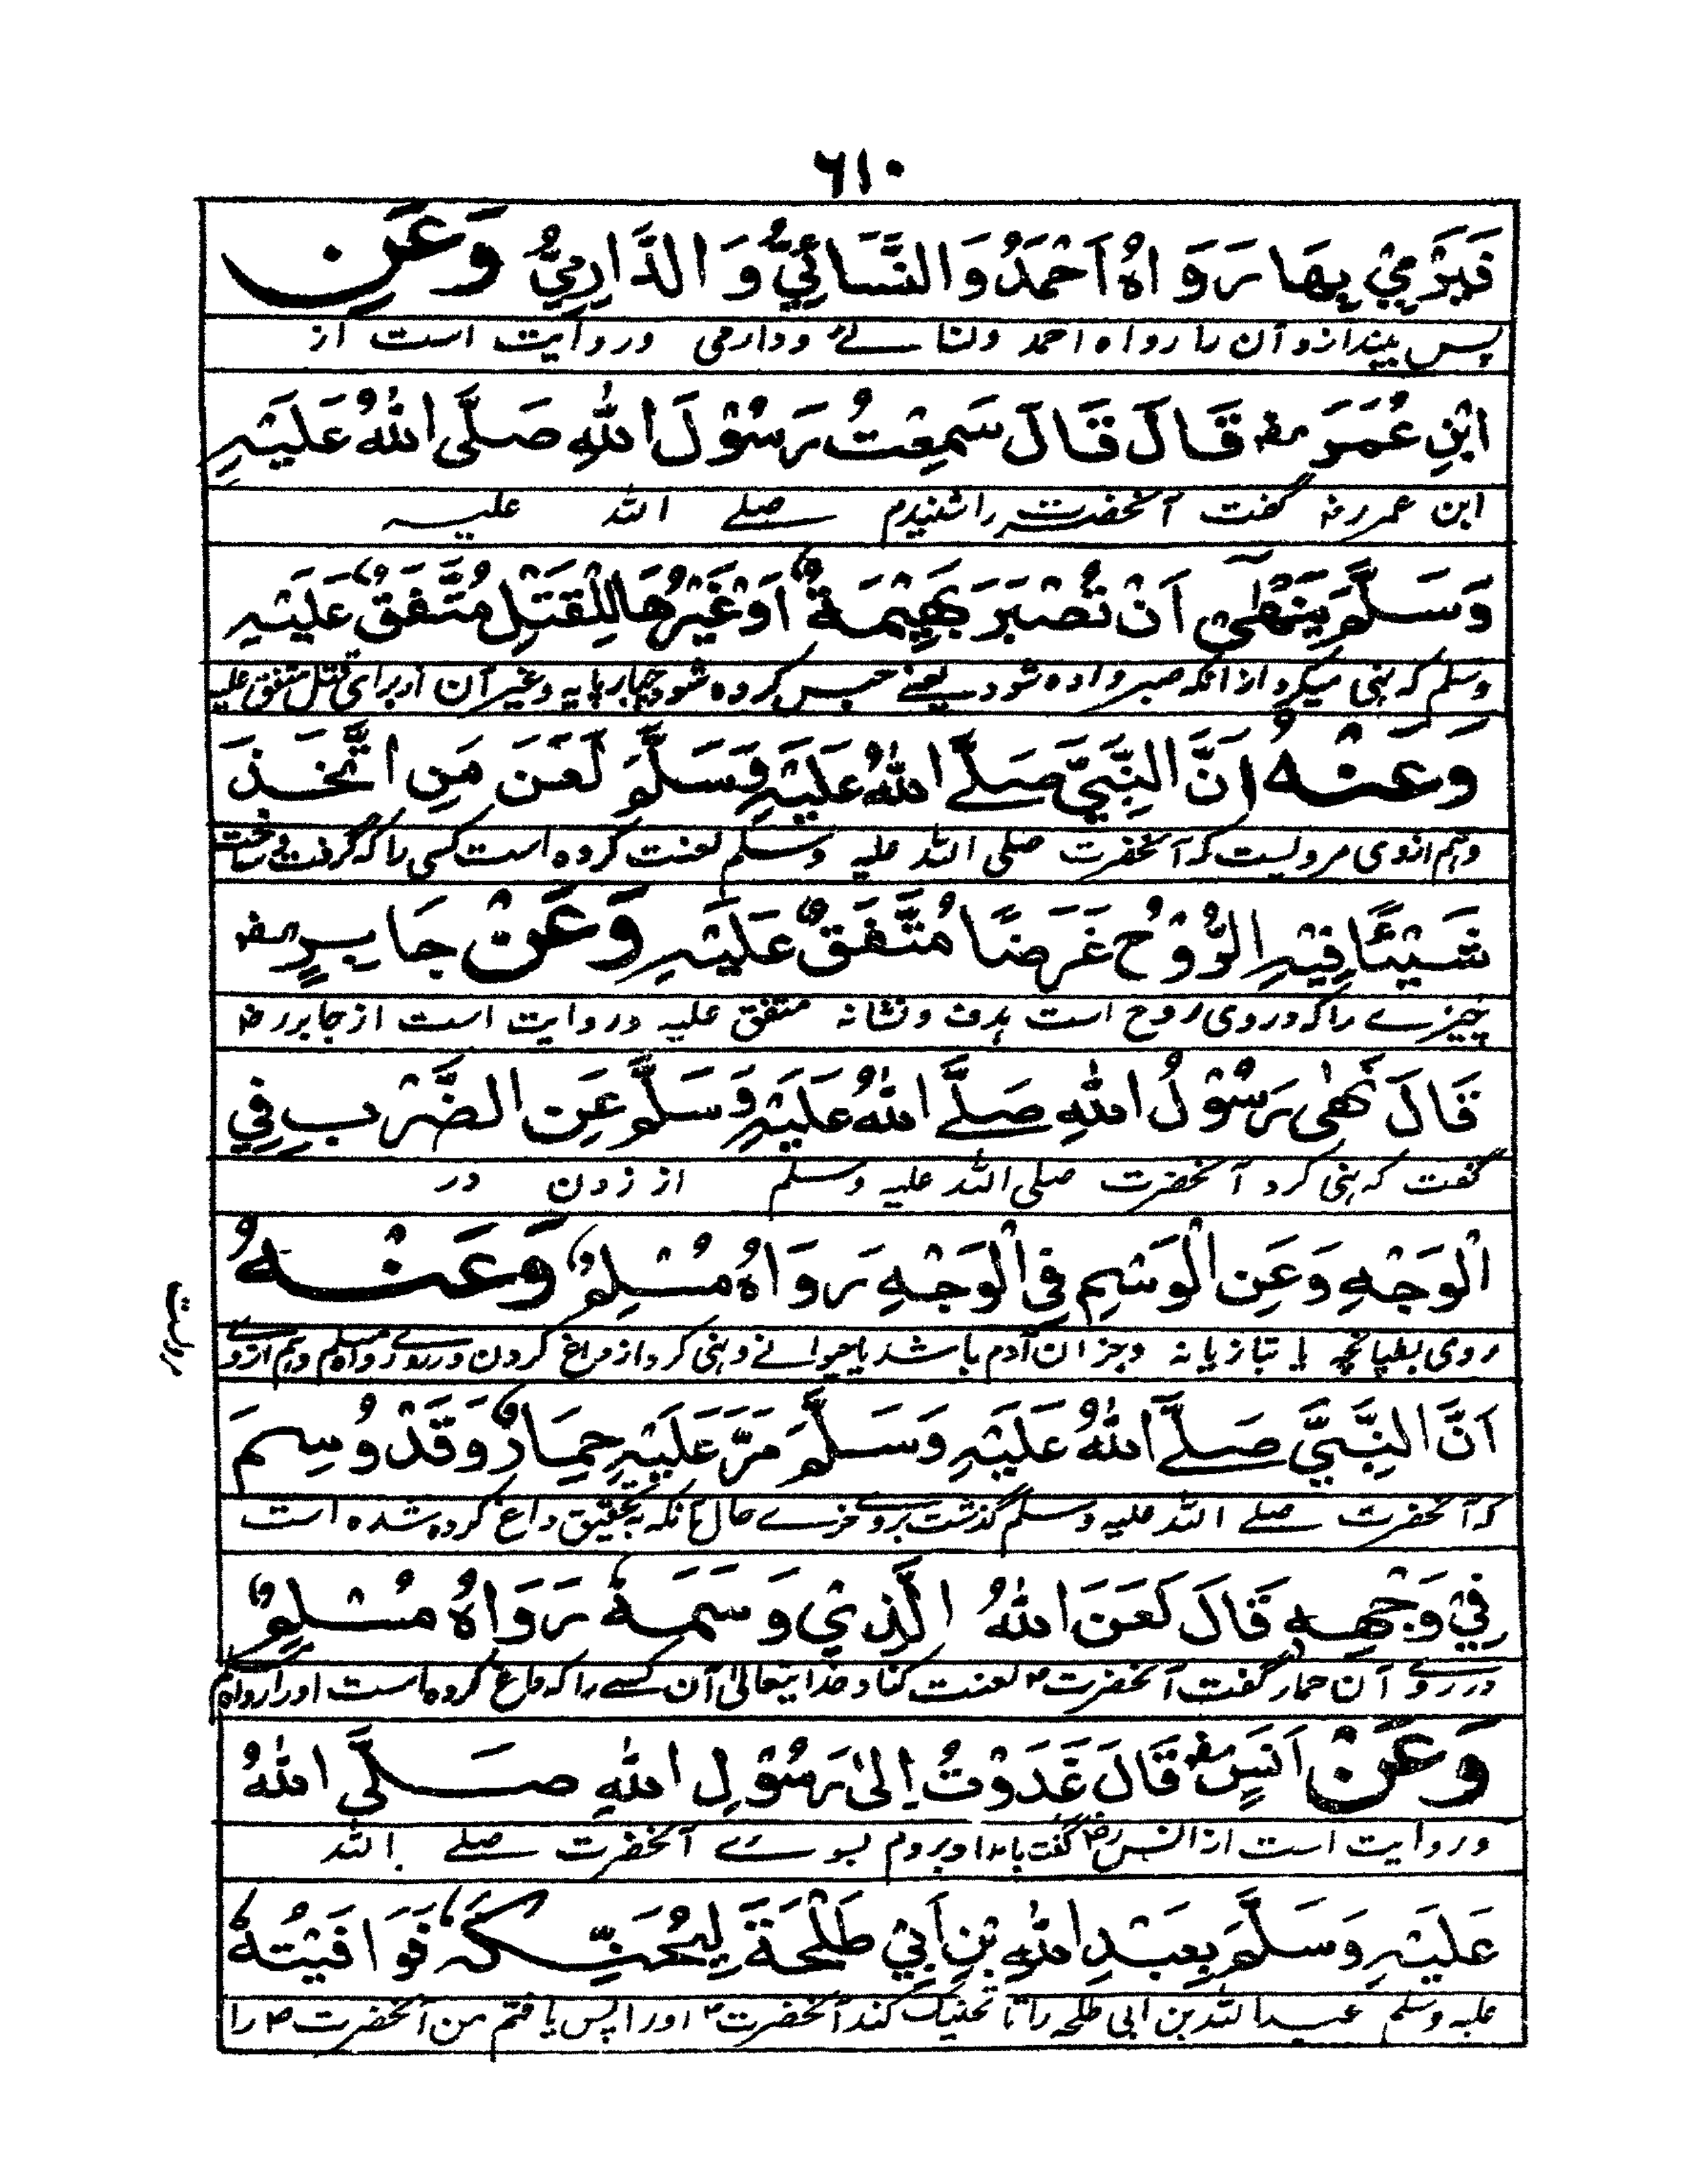 ۶۱۰
فَيَرْمِيْ بِهَا رَوَاهُ اَحْمَدُ وَالنَّسَائِيُّ وَ الدَّارِمِيُّ وَعَنِ
پس بیندازد آن را رواہ احمد ونسائے ودارمی وروایت است از
ابْنِ عُمَرَ رضہ قَالَ قَالَ سَمِعْتُ رَسُوْلَ اللهِ صَلَّى اللهُ عَلَيْهِ
ابن عمر رضہ گفت آنحضرت را شنیدم صلے اللہ علیہ
وَسَلَّمَ يَنْهٰى اَنْ تُصْبَرَ بَهِيْمَةٌ اَوْ غَيْرُهَا لِلْقَتْلِ مُتَّفَقٌ عَلَيْهِ
وسلم کہ نہی میکرد از انکہ صبر دادہ شود یعنے حبس کردہ شود چہارپایہ وغیر آن از برای قتل متفق علیہ
وَعَنْهُ اَنَّ النَّبِيَّ صَلَّے اللهُ عَلَيْهِ وَسَلَّمَ لَعَنَ مَنِ اتَّخَذَ
وہم ازوی مرویست کہ آنحضرت صلی اللہ علیہ وسلم لعنت کردہ است کسی را کہ گرفت
شَيْئًا فِيْهِ الرُّوْحُ غَرَضًا مُتَّفَقٌ عَلَيْهِ وَعَنْ جَابِرٍ رضہ
چیزے را کہ دروی روح است ہدف ونشانہ متفق علیہ وروایت است از جابر رضہ
قَالَ نَهٰى رَسُوْلُ اللهِ صَلَّے اللهُ عَلَيْهِ وَسَلَّمَ عَنِ الضَّرْبِ فِي
گفت کہ نہی کرد آنحضرت صلی اللہ علیہ وسلم از زدن در
الْوَجْهِ وَعَنِ الْوَسْمِ فِي الْوَجْهِ رَوَاهُ مُسْلِمٌ وَعَنْهُ
روی بطپانچہ یا تبازیانہ وجز آن آدم باشد یا حیوانے ونہی کرد از داغ کردن درروے رواہ مسلم وہم ازوے
اَنَّ النَّبِيَّ صَلَّے اللهُ عَلَيْهِ وَسَلَّمَ مَرَّ عَلَيْهِ حِمَارٌ وَقَدْ وُسِمَ
کہ آنحضرت صلے اللہ علیہ وسلم گذشت بروے خرے حال آنکہ بتحقیق داغ کردہ شدہ است
فِيْ وَجْهِهٖ قَالَ لَعَنَ اللهُ الَّذِيْ وَسَمَهٗ رَوَاهُ مُسْلِمٌ
درروے آن حمار گفت آنحضرت ؐ لعنت کناد خدایتعالیٰ آن کسے را کہ داغ کردہ است اورا رواہ م
وَعَنْ اَنَسٍ رضہ قَالَ غَدَوْتُ اِلٰى رَسُوْلِ اللهِ صَلَّى اللهُ
وروایت است از انس رضہ گفت بامداد بردم بسوے آنحضرت صلے اللہ
عَلَيْهِ وَسَلَّمَ بِعَبْدِ اللهِ بْنِ اَبِيْ طَلْحَةَ لِيُحَنِّكَهٗ فَوَافَيْتُهٗ
علیہ وسلم عبداللہ بن ابی طلحہ را تا تحنیک کند آنحضرت ؐ اورا پس یافتم من آنحضرت ؐ را